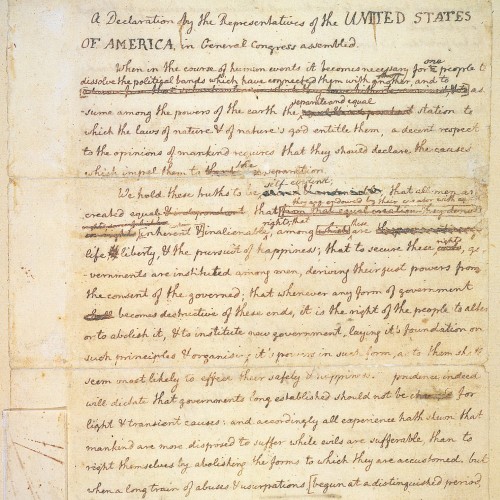 A Declaration by the Representatives of the UNITED STATES
OF AMERICA, in General Congress assembled.
When in the course of human events it becomes necessary for one people to
dissolve the political bands which have connected them with another, and to
as-
separate and equal
sume among the powers of the earth the station to
which the laws of nature & of nature's god entitle them, a decent respect
to the opinions of mankind requires that they should declare the causes
which impel them to the separation.
self-evident;
We hold these truths to be that all men are
they are endowed by their creator with
created equal that from that equal creation they derive
rights; that
inherent & inalienable, among which are
life, liberty, & the pursuit of happiness; that to secure these rights, go-
vernments are instituted among men, deriving their just powers from
the consent of the governed; that whenever any form of government
becomes destructive of these ends, it is the right of the people to alter
or to abolish it, & to institute new government, laying it's foundation on
such principles & organising it's powers in such form, as to them shall
seem most likely to effect their safety & happiness. prudence indeed
will dictate that governments long established should not be changed for
light & transient causes: and accordingly all experience hath shewn that
mankind are more disposed to suffer while evils are sufferable, than to
right themselves by abolishing the forms to which they are accustomed. but
when a long train of abuses & usurpations, [begun at a distinguished period,